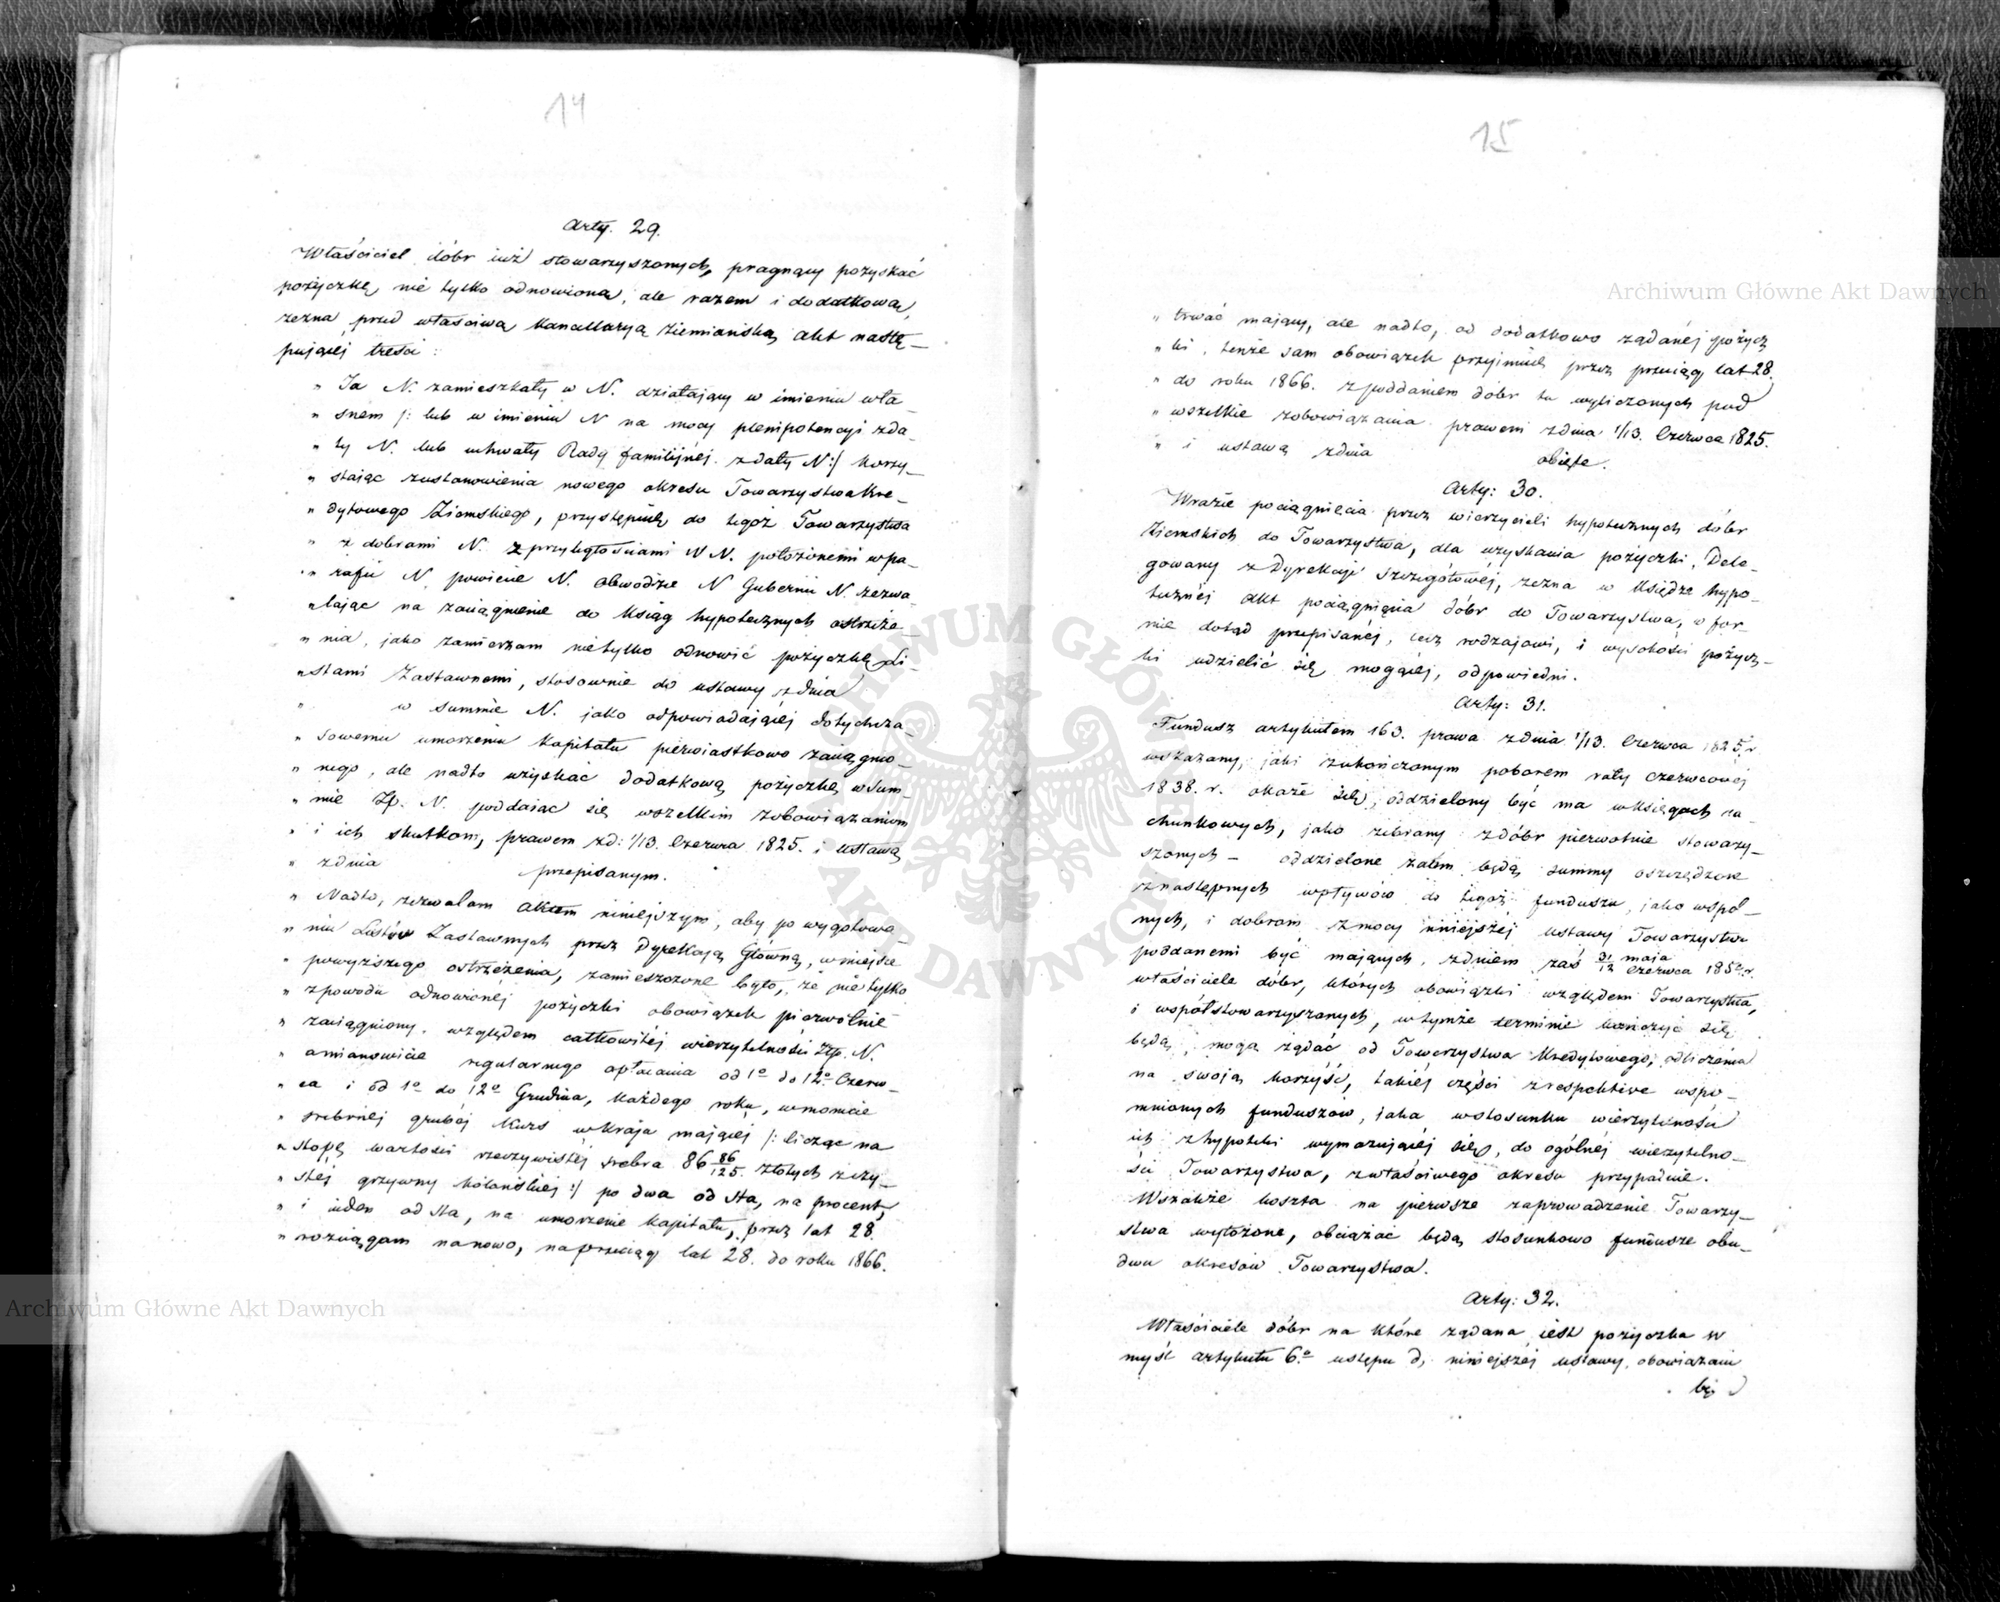 14
Arty. 29.
Właściciel dóbr iuż stowarzyszonych, pragnący pozyskać
pożyczkę nie tylko odnowioną, ale razem i dodatkową,
zezna przed właściwą Kancellaryą Ziemiańską akt nastę-
puiącéj treści:
" Ja N. zamieszkały w N. działaiący w imieniu wła-
" snem /: lub w imieniu N na mocy plenipotencyi zda-
" ty N. lub uchwały Rady familijnéj z daty N :/ korzy-
" staiąc zustanowienia nowego okresu Towarzystwa Kre-
" dytowego Ziemskiego, przystępuię do tegoż Towarzystwa
" z dobrami N. z przyległościami N N. położonemi wpa-
" rafii N. powiecie N. Obwodzie N Gubernii N. zezwa-
" laiąc na zaciągnienie do ksiąg hypotecznych ostrzeże-
" nia, jako zamierzam nietylko odnowić pożyczkę Li-
" stami Zastawnemi, stosownie do ustawy z dnia
" w summie N. jako odpowiadaiącéj dotychcza-
" sowemu umorzeniu Kapitału pierwiastkowo zaciągnio-
" nego, ale nadto uzyskać dodatkową pożyczkę w Sum-
" mie Zp. N. poddaiąc się wszelkim zobowiązaniom
" i ich skutkom, prawem zd: 1/13. Czerwca 1825. i ustawą
" zdnia przepisanym.
" Nadto, zezwalam aktem niniejszym, aby po wygotowa-
" niu Listów Zastawnych przez Dyrekcyą Główną, wmiejsce
" powyższego ostrzeżenia, zamieszczone było, że nietylko
" zpowodu odnowionéj pożyczki obowiązek pierwotnie
" zaciągniony, względem całkowitéj wierzytelności Złp. N.
" amianowicie regularnego opłacania od 1º do 12º Czerw-
" ca i od 1º do 12º Grudnia, każdego roku, wmonecie
" srebrnéj grubéj Kurs wKraju maiącéj /: licząc na
" stopę wartości rzeczywistéj srebra 86 86/125 złotych zczy-
" stéj grzywny kolońskiéj :/ po dwa od sta, na procent,
" i ieden od sta, na umorzenie Kapitału, przez lat 28.
" rozciągam nanowo, naprzeciąg lat 28. do roku 1866.
15
" trwać maiący, ale nadto, od dodatkowo żądanéj pożycz
" ki, tenże sam obowiązek przyimuię przez przeciąg lat 28.
" do roku 1866. z poddaniem dóbr tu wyliczonych pod
" wszelkie zobowiązania prawem zdnia 1/13. Czerwca 1825.
" i ustawą zdnia obięte.
Arty: 30.
Wrazie pociągnięcia przez wierzycieli hypotecznych dóbr
Ziemskich do Towarzystwa, dla uzyskania pożyczki, Dele-
gowany z Dyrekcyi Szczegółowéj, zezna w Księdze hypo-
tecznéj akt pociągnięcia dóbr do Towarzystwa, w for-
mie dotąd przepisanéj, lecz rodzajowi, i wysokości pożycz-
ki udzielić się mogącéj, odpowiedni.
Arty: 31.
Fundusz artykułem 163. prawa zdnia 1/13. Czerwca 1825 r.
wskazany, jaki zukończonym poborem raty Czerwcowéj
1838. r. okaże się, oddzielony być ma wksięgach ra-
chunkowych, jako zebrany zdóbr pierwotnie stowarzy-
szonych - oddzielone zatém będą summy oszczędzone
znastępnych wpływów do tegoż funduszu, jako wspól-
nych, i dobrom zmocy niniejszéj ustawy Towarzystwu
poddanemi być maiących, zdniem zaś 31/12 maja/Czerwca 1852. r.
właściciele dóbr, których obowiązki względem Towarzystwa,
i współstowarzyszonych, wtymże terminie kończyć się
będą, mogą żądać od Towarzystwa Kredytowego, odliczenia
na swoją korzyść, takiéj części zrespektive wspo-
mnionych funduszów, jaka wstosunku wierzytelności
ich zhypoteki wymazuiącéj się, do ogólnéj wierzytelno-
ści Towarzystwa, zwłaściwego okresu przypadnie.
Wszakże koszta na pierwsze zaprowadzenie Towarzy-
stwa wyłożone, obciążać będą stosunkowo fundusze obu-
dwu okresów Towarzystwa.
Arty: 32.
Właściciele dóbr na które żądana iest pożyczka w
myśl artykułu 6.º ustępu d, niniejszéj ustawy, obowiązani
będ
Archiwum Główne Akt Dawnych
Archiwum Główne Akt Dawnych
ARCHIWUM GŁÓWNE AKT DAWNYCH